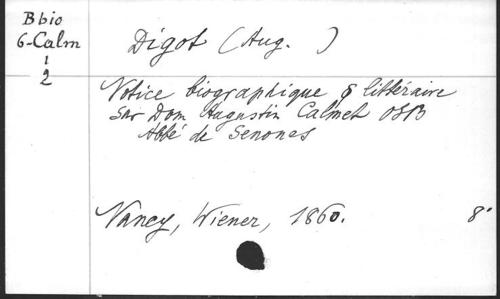 B bio
6-Calm
1
2
Digot (Aug. )
Notice biographique & littéraire
sur Dom Augustin Calmet OSB
Abbé de Senones
Nancy, Wiener, 1860. 8°